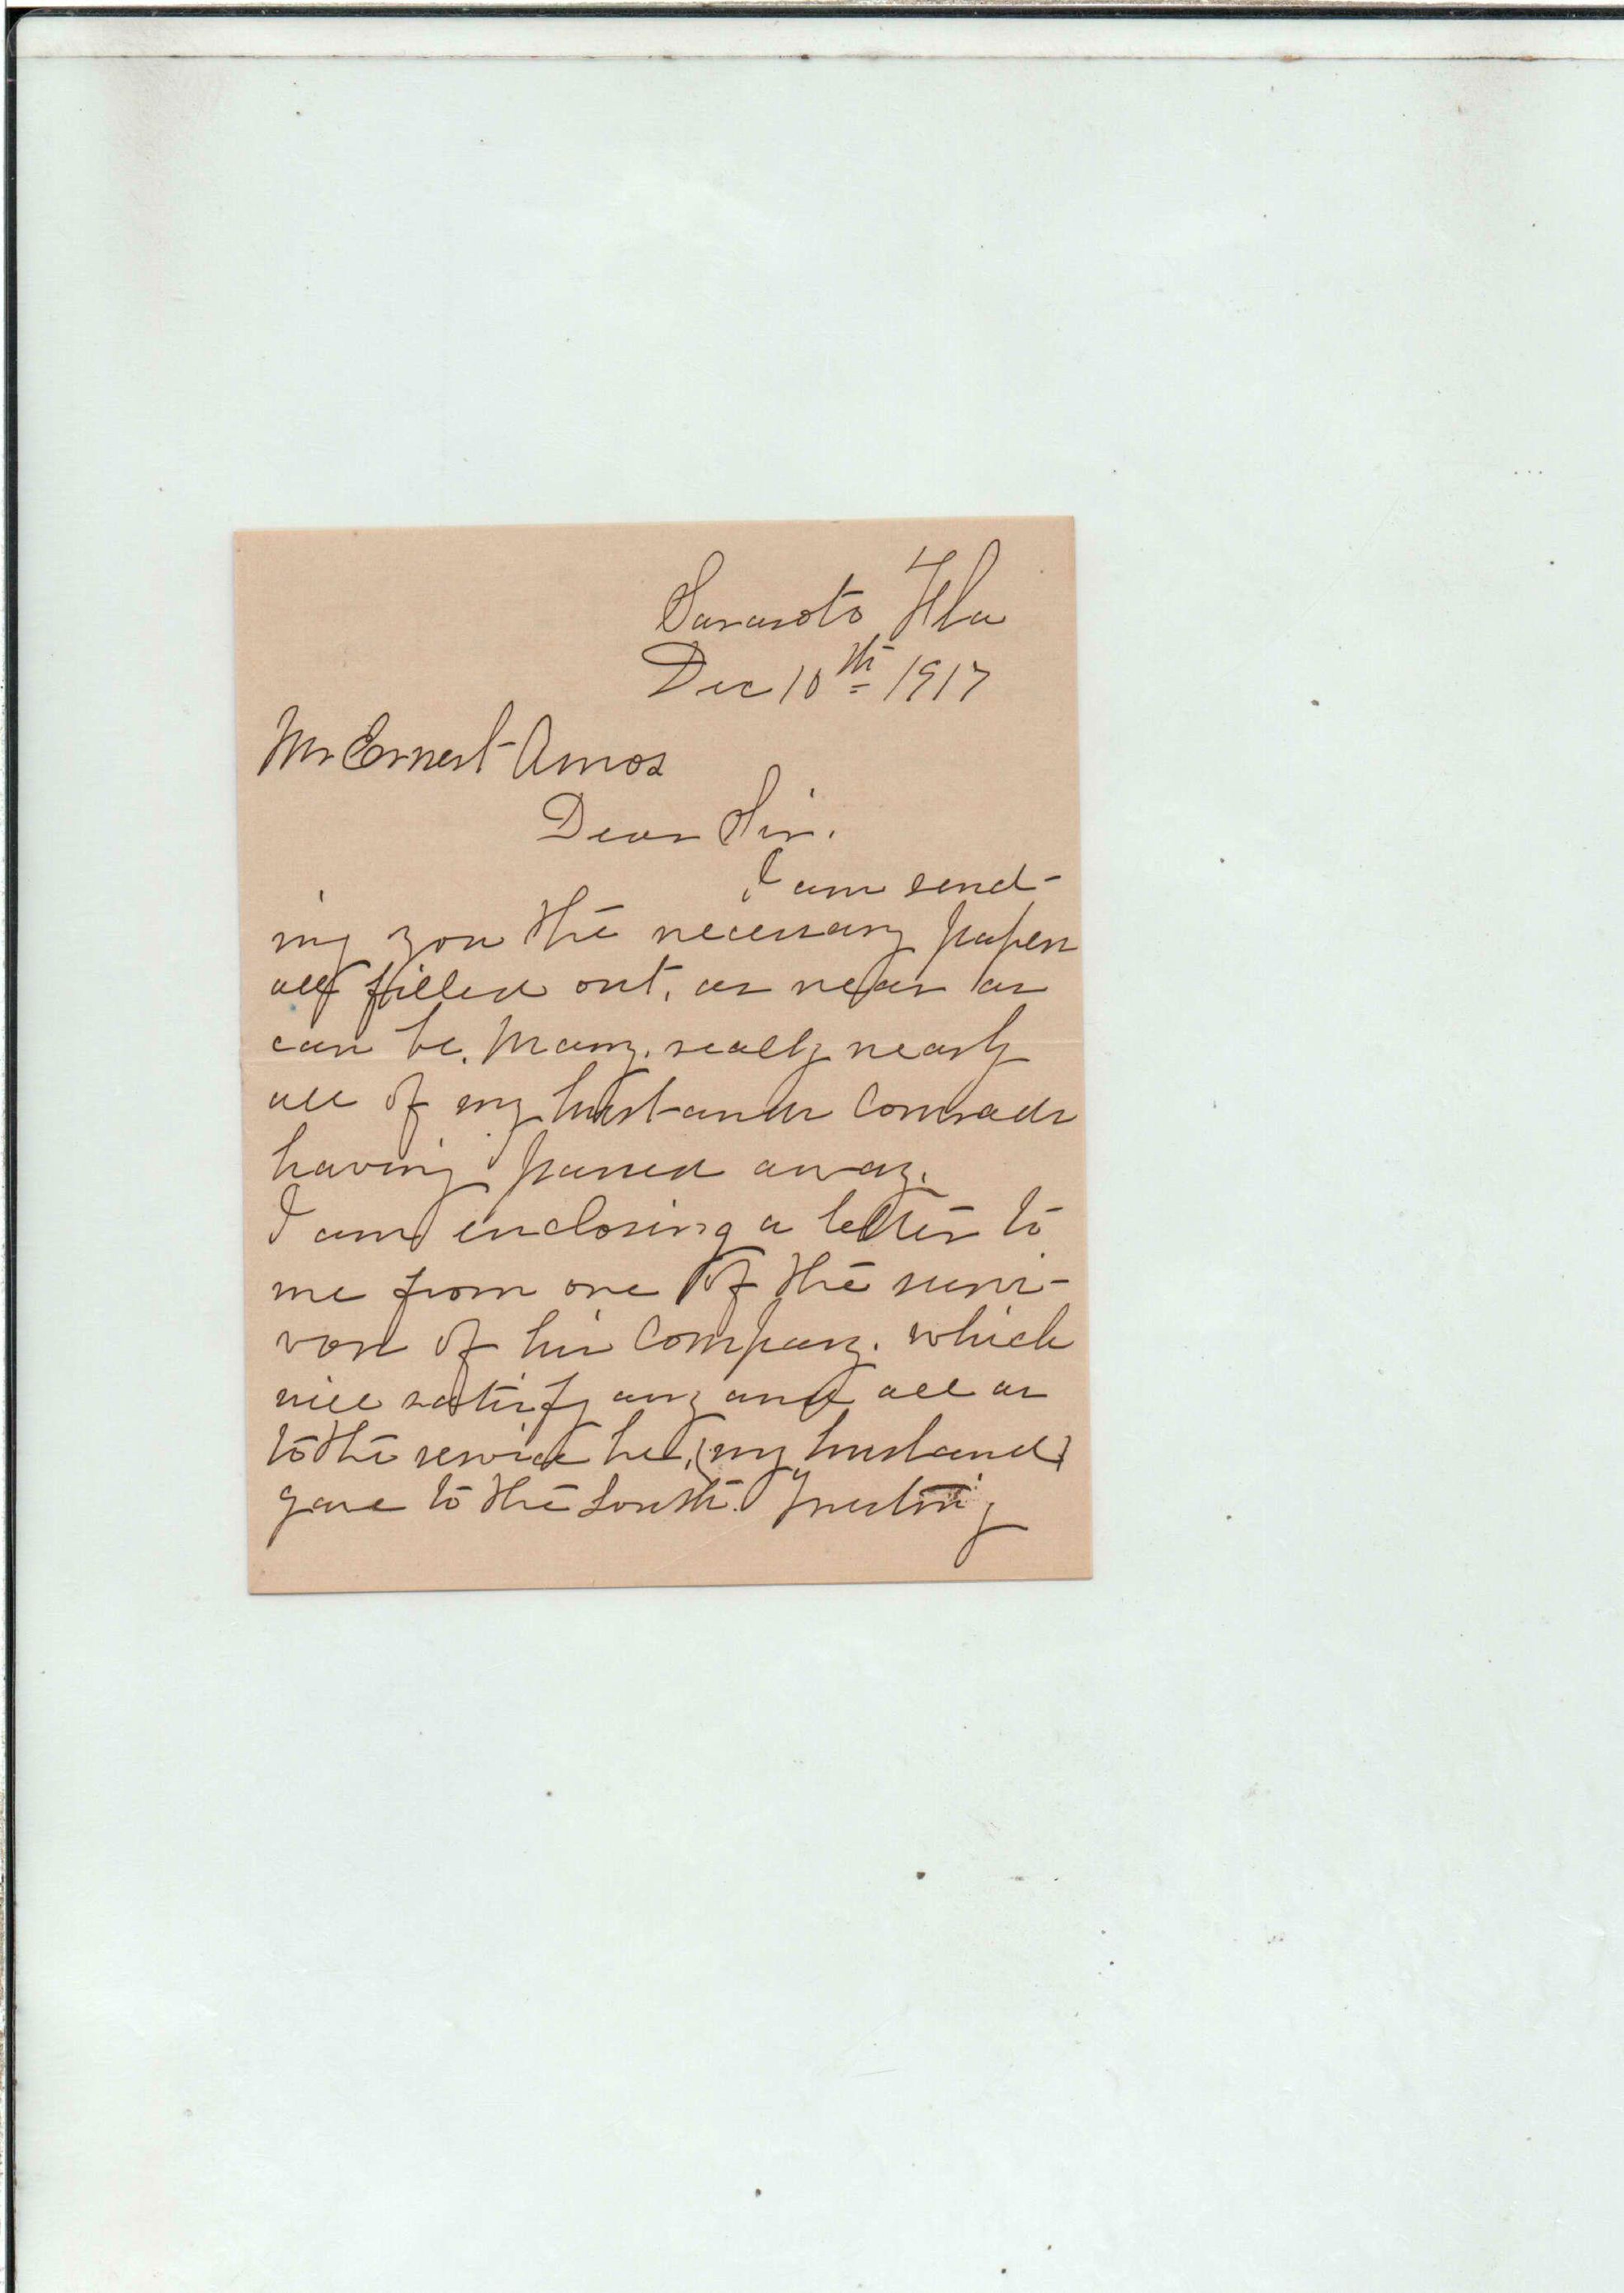 Sarasota Fla
Dec 10th 1917
Mr Ernest Amos
Dear Sir.
I am send-
ing you the necessary papers
all filled out, as near as
can be. Many, really nearly
all of my husbands comrads
having passed away.
I am enclosing a letter to
me from one of the survi-
vors of his Company. which
will satisfy any and all as
to the service he, (my husband)
gave to the South. Trusting